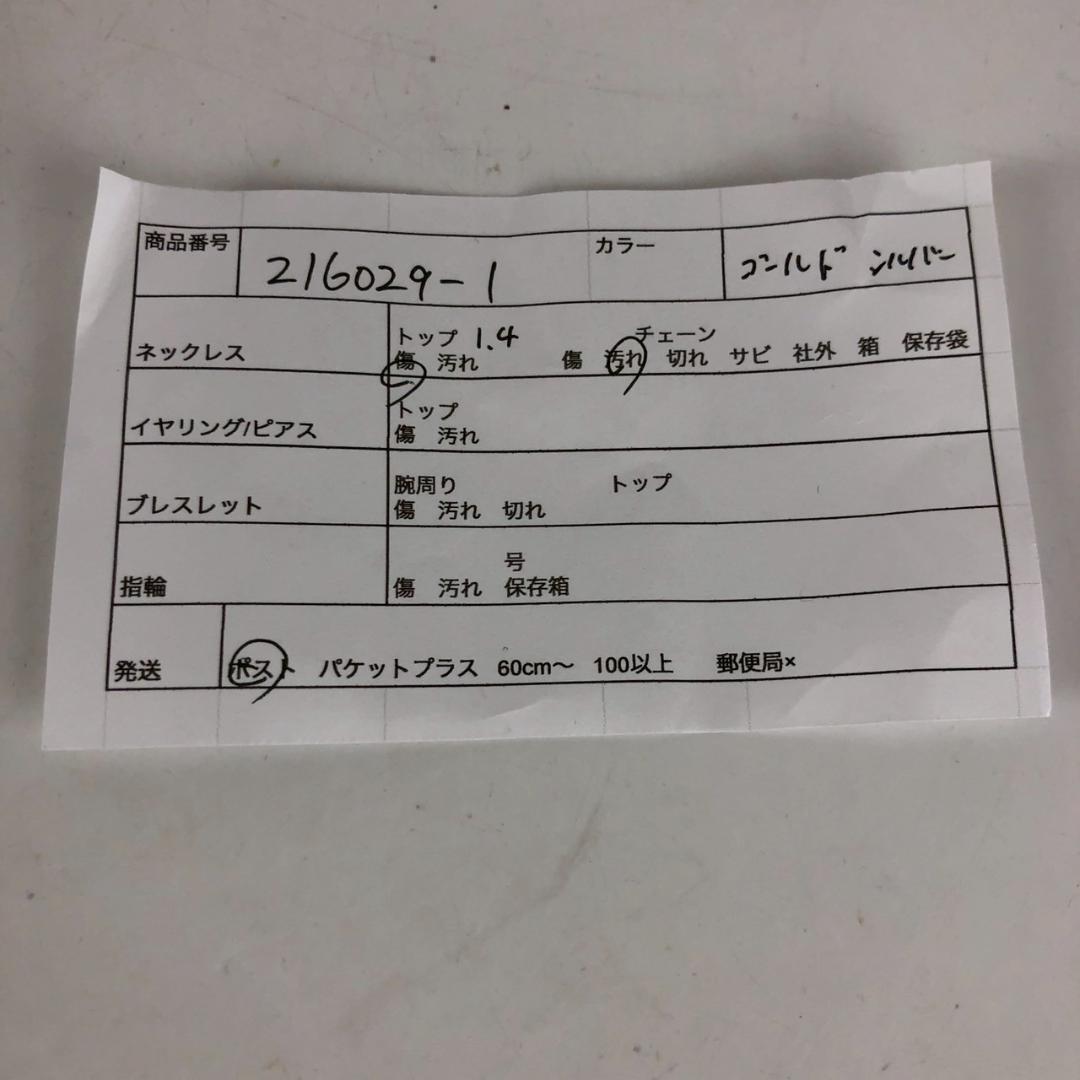 商品番号 216029-1 カラー ゴールド シルバー
ネックレス トップ 1.4 チェーン
傷 汚れ 傷 汚れ 切れ サビ 社外 箱 保存袋
イヤリング/ピアス トップ
傷 汚れ
ブレスレット 腕周り トップ
傷 汚れ 切れ
指輪 号
傷 汚れ 保存箱
発送 ポスト パケットプラス 60cm〜 100以上 郵便局×